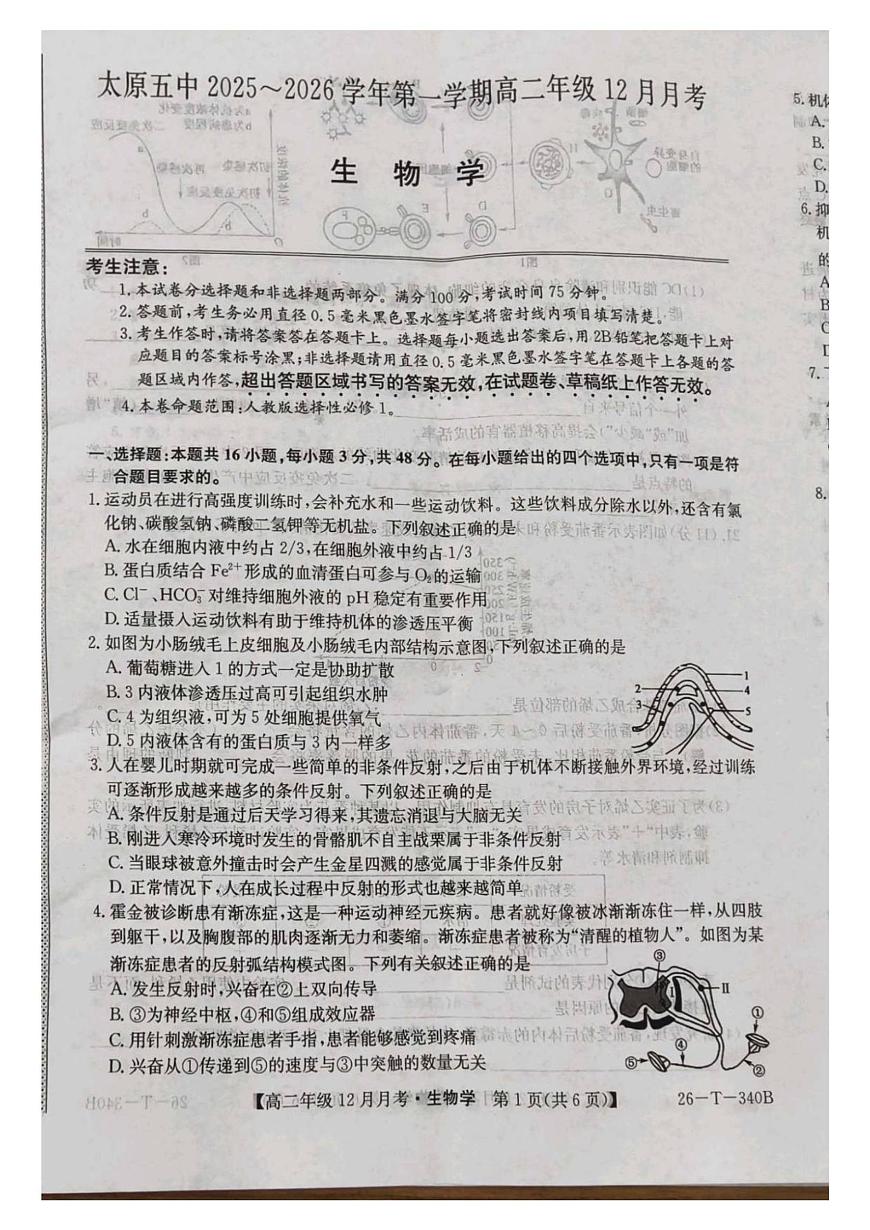 太原五中 2025～2026 学年第一学期高二年级 12 月月考
生 物 学
考生注意：
1. 本试卷分选择题和非选择题两部分。满分 100 分，考试时间 75 分钟。
2. 答题前，考生务必用直径 0.5 毫米黑色墨水签字笔将密封线内项目填写清楚。
3. 考生作答时，请将答案答在答题卡上。选择题每小题选出答案后，用 2B 铅笔把答题卡上对
应题目的答案标号涂黑；非选择题请用直径 0.5 毫米黑色墨水签字笔在答题卡上各题的答
题区域内作答，超出答题区域书写的答案无效，在试题卷、草稿纸上作答无效。
4. 本卷命题范围：人教版选择性必修 1。
一、选择题：本题共 16 小题，每小题 3 分，共 48 分。在每小题给出的四个选项中，只有一项是符
合题目要求的。
1. 运动员在进行高强度训练时，会补充水和一些运动饮料。这些饮料成分除水以外，还含有氯
化钠、碳酸氢钠、磷酸二氢钾等无机盐。下列叙述正确的是
A. 水在细胞内液中约占 2/3，在细胞外液中约占 1/3
B. 蛋白质结合 Fe²⁺ 形成的血清蛋白可参与 O₂ 的运输
C. Cl⁻、HCO₃⁻ 对维持细胞外液的 pH 稳定有重要作用
D. 适量摄入运动饮料有助于维持机体的渗透压平衡
2. 如图为小肠绒毛上皮细胞及小肠绒毛内部结构示意图，下列叙述正确的是
A. 葡萄糖进入 1 的方式一定是协助扩散
B. 3 内液体渗透压过高可引起组织水肿
C. 4 为组织液，可为 5 处细胞提供氧气
D. 5 内液体含有的蛋白质与 3 内一样多
1
2
4
3
5
3. 人在婴儿时期就可完成一些简单的非条件反射，之后由于机体不断接触外界环境，经过训练
可逐渐形成越来越多的条件反射。下列叙述正确的是
A. 条件反射是通过后天学习得来，其遗忘消退与大脑无关
B. 刚进入寒冷环境时发生的骨骼肌不自主战栗属于非条件反射
C. 当眼球被意外撞击时会产生金星四溅的感觉属于非条件反射
D. 正常情况下，人在成长过程中反射的形式也越来越简单
4. 霍金被诊断患有渐冻症，这是一种运动神经元疾病。患者就好像被冰渐渐冻住一样，从四肢
到躯干，以及胸腹部的肌肉逐渐无力和萎缩。渐冻症患者被称为“清醒的植物人”。如图为某
渐冻症患者的反射弧结构模式图。下列有关叙述正确的是
A. 发生反射时，兴奋在②上双向传导
B. ③为神经中枢，④和⑤组成效应器
C. 用针刺激渐冻症患者手指，患者能够感觉到疼痛
D. 兴奋从①传递到⑤的速度与③中突触的数量无关
③
Ⅱ
①
④
⑤
②
【高二年级 12 月月考·生物学 第 1 页（共 6 页）】
26－T－340B
5. 机
A.
B.
C.
D.
6. 抑
机
的
A
B
C
7.
8.